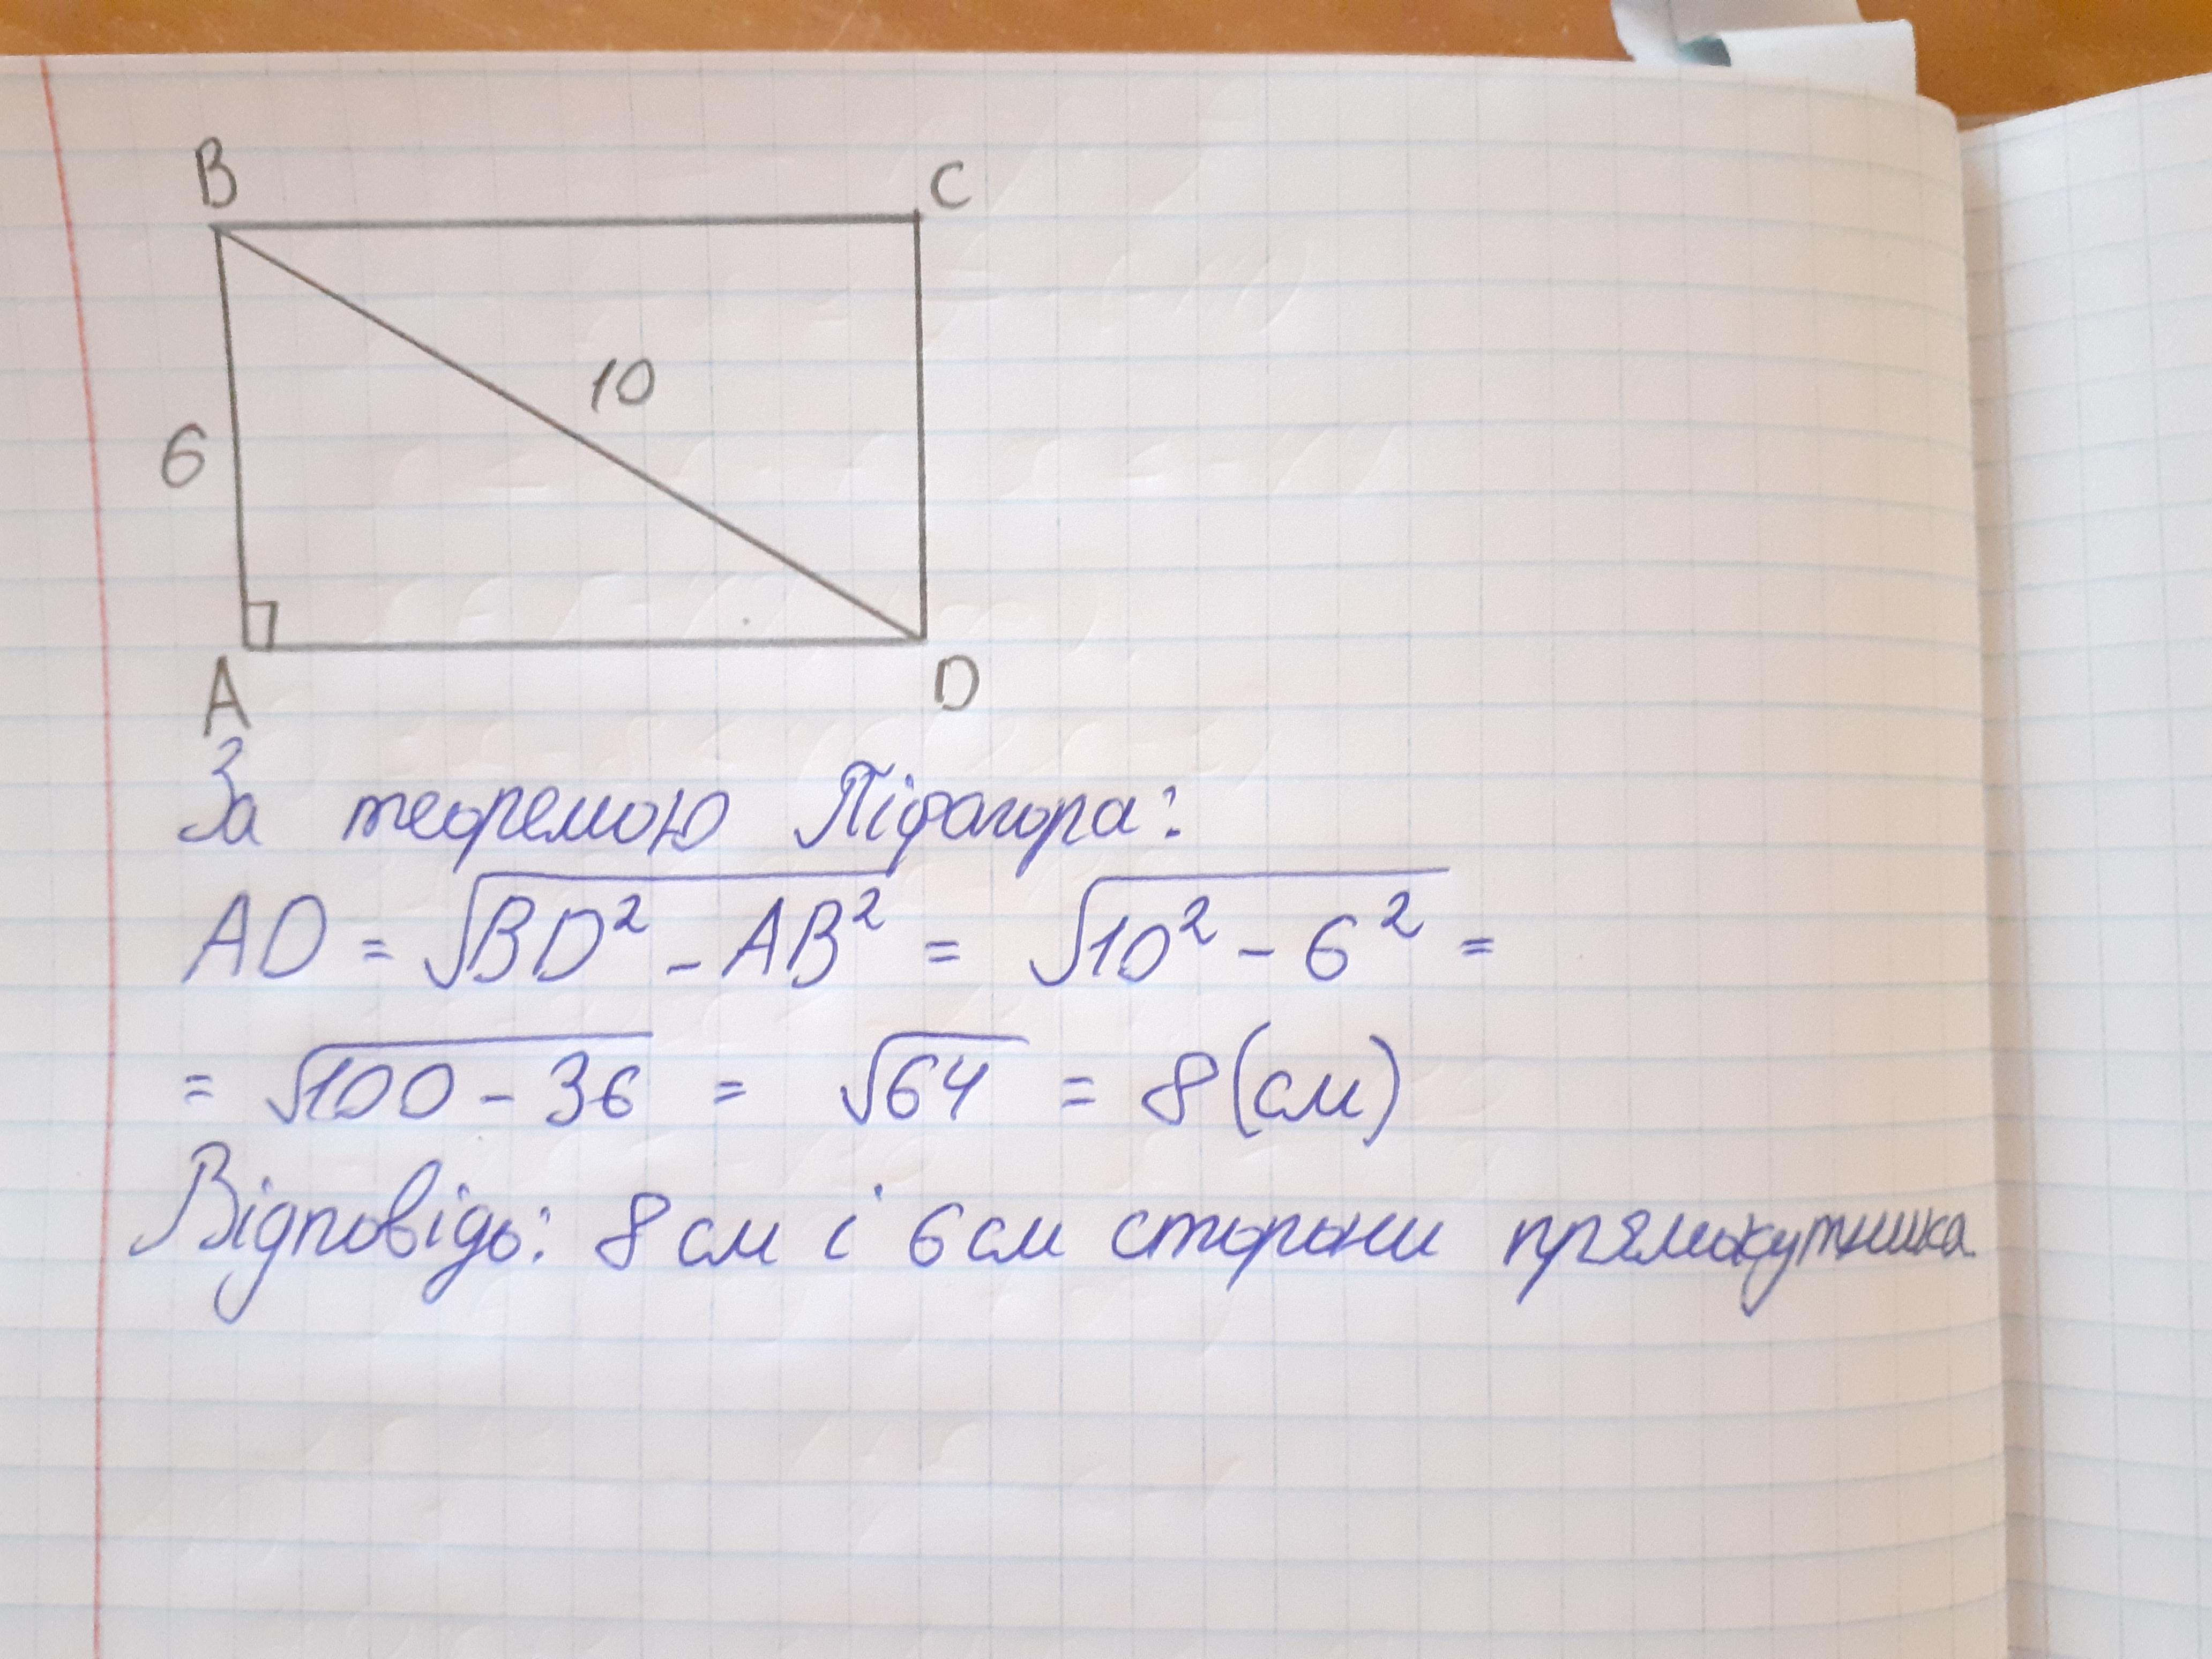 B
C
10
6
A
D
За теоремою Піфагора:
AD = √BD² - AB² = √10² - 6² =
= √100 - 36 = √64 = 8 (см)
Відповідь: 8 см і 6 см сторони прямокутника